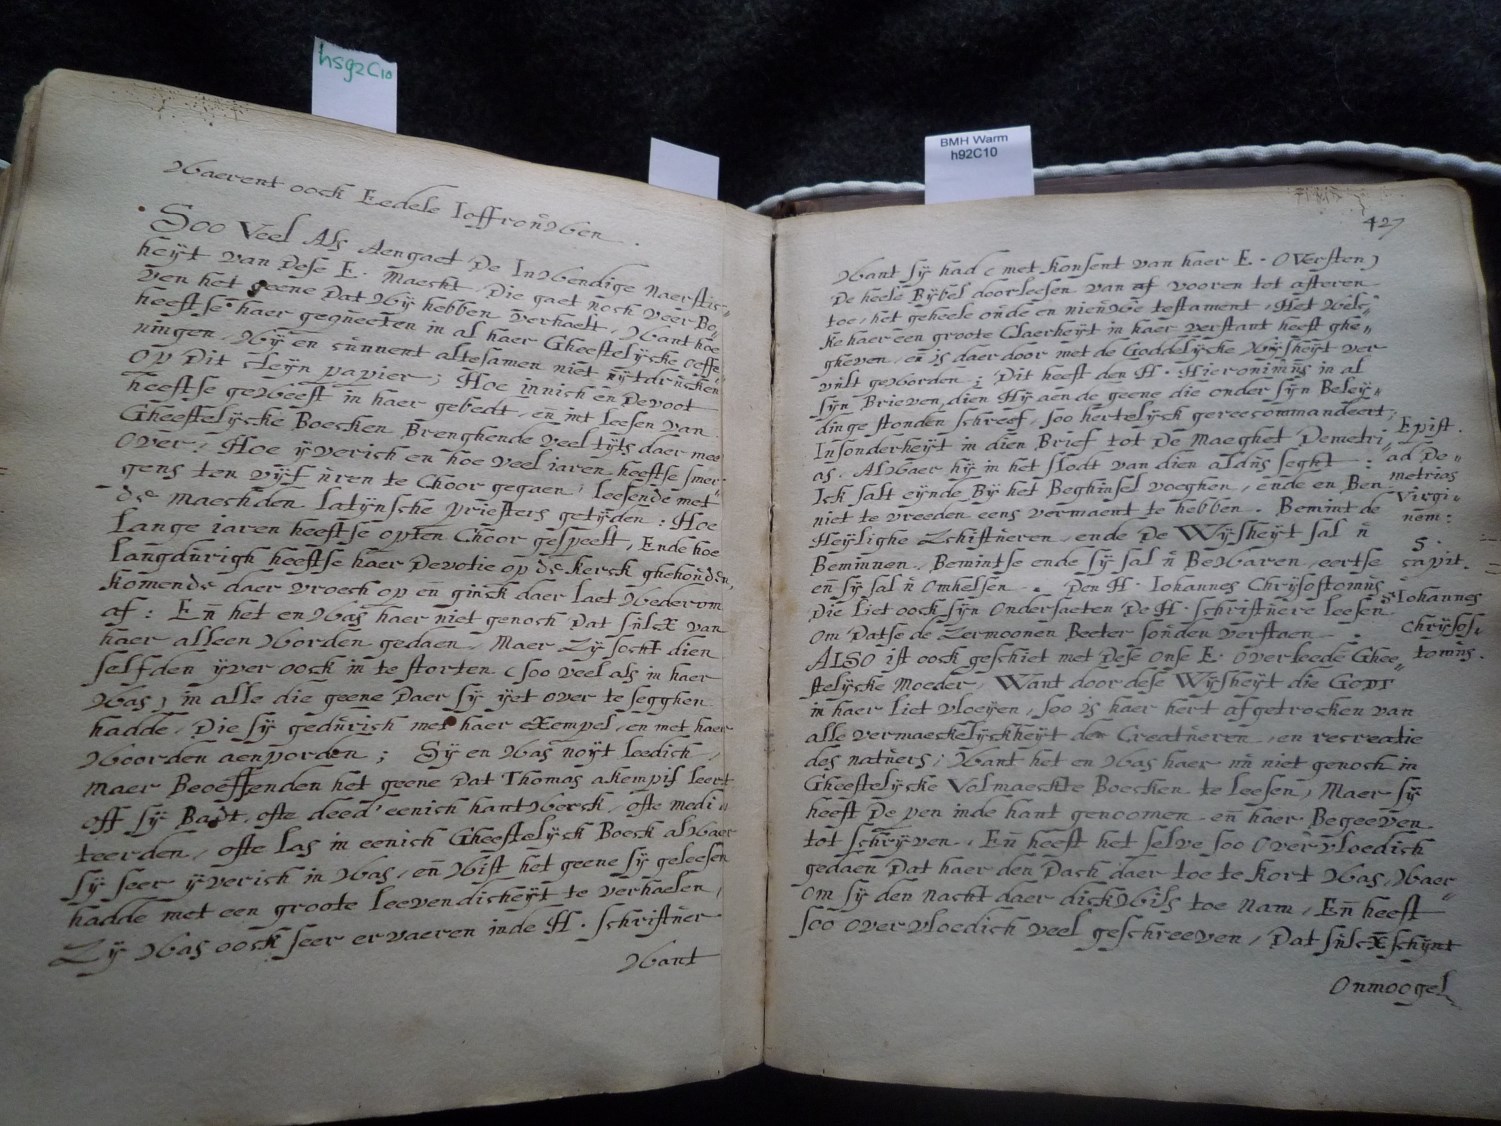 hsg2C10
BMH Warm
h92C10
Waerent oock Eedele Ioffrouwen.
Soo Veel Als Aengaet De Inwendige Naerstic„
heÿt van Dese E. Maecht, Die gaet noch veer Bo„
ven het geene Dat Wÿ hebben verhaelt, Want hoe
heeftse haer gequeeten in al haer Gheestelÿcke oeffe„
ningen, Wÿ en cunnent altesamen niet uÿtdrucken
op Dit cleÿn papier; Hoe innich en Devoot
heeftse geweest in haer gebedt, en int leesen van
Gheestelÿcke Boecken Brenghende veel tÿts daer mee
over, Hoe ÿverich en hoe veel iaren heeftse smer„
gens ten vÿf uren te Choor gegaen, leesende met
de maechden latÿnsche priesters getÿden: Hoe
lange iaren heeftse opten Choor gespeelt, Ende hoe
langdurich heeftse haer Devotie op de kerck ghehouden,
komende daer vroech op en ginck daer laet Wederom
af: En het en Was haer niet genoch Dat sulcx van
haer alleen Worden gedaen, Maer Zÿ socht dien
selfden ÿver oock in te storten (soo veel als in haer
Was) in alle die geene Daer sÿ ÿet over te segghen
hadde, Die sÿ gedurich met haer exempel, en met haer
Woorden aenporden; Sÿ en Was noÿt leedich,
maer Beoeffenden het geene Dat Thomas akempis leert
off sÿ Badt, ofte deed' eenich hantWerck, ofte medi„
teerden, ofte las in eenich Gheestelÿck Boeck alWaer
sÿ seer ÿverich in Was, en Wist het geene sÿ geleesen
hadde met een groote leevendicheÿt te verhaelen,
Zÿ Was oock seer ervaeren inde H. schriftuer
Want
427
Want sÿ had (met konsent van haer E. Oversten)
De heele Bÿbel doorleesen van af vooren tot afteren
toe, het geheele oude en nieuwe testament, Het Wel„
ke haer een groote Claerheÿt in haer verstant heeft ghe„
gheven, en is daer door met de Goddelÿcke Wÿsheÿt ver
vult geworden; Dit heeft den H. Hieronimus in al
sÿn Brieven, dien Hÿ aen de geene die onder sÿn Beleÿ„
dinge stonden schreef, soo hertelÿck gereecommandeert,
Insonderheÿt in dien Brief tot De Maeghet Demetri„
as. Alwaer hÿ in het slodt van dien aldus seght:
Ick salt eÿnde Bÿ het Beghinsel voeghen, ende en Ben
niet te vreeden eens vermaent te hebben. Bemint de
Heÿlighe Schiftueren, ende De Wÿsheÿt sal u
Beminnen, Bemintse ende sÿ sal u Bewaren, eertse
en sÿ sal u omhelsen. Den H. Iohannes Chrÿsostomus
Die liet oock sÿn Ondersaeten De H. schriftuere leesen
om Datse de Sermoonen Beeter souden verstaen.
Epist.
ad De„
metrias
virgi„
nem:
S.
capit.
S Iohannes
Chrÿsos„
tomus.
ALSO ist oock geschiet met Dese onse E. overleede Ghee„
stelÿcke Moeder, Want door dese Wÿsheÿt die Godt
in haer liet vloeÿen, soo is haer hert afgetrocken van
alle vermaeckelÿckheÿt der Creatueren, en recreatie
des natuers; Want het en Was haer nu niet genoch in
Gheestelÿcke Volmaeckte Boecken te leesen, Maer sÿ
heeft De pen inde hant genoomen en haer Begeeven
tot schrÿven, En heeft het selve soo Overvloedich
gedaen Dat haer den Dach daer toe te kort Was, Waer„
om sÿ den nacht daer dickWils toe nam, En heeft
soo overvloedich veel geschreeven, Dat sulcx schÿnt
Onmoogel